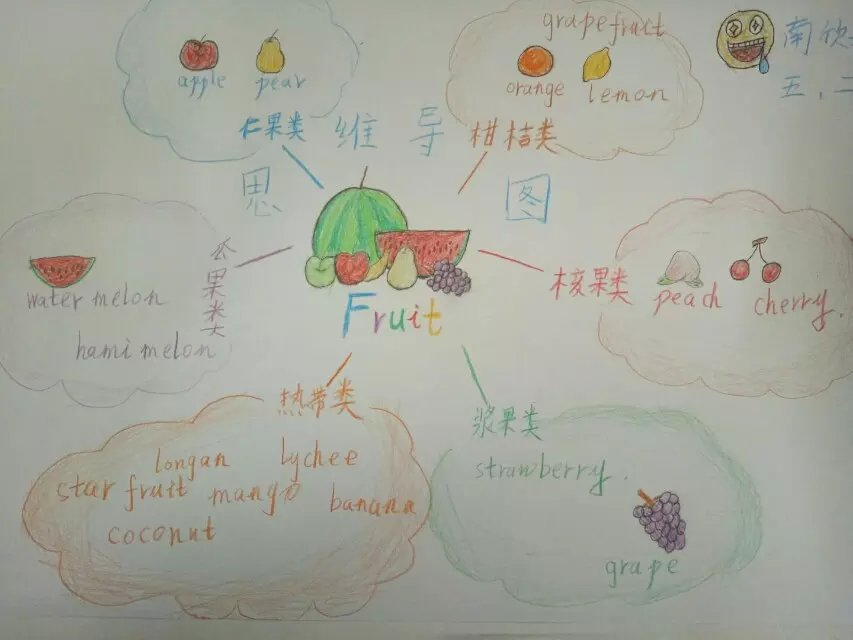 apple pear
仁果类
grapefruit
orange lemon
柑桔类
南欣
五、二
思维导图
瓜果类
water melon
hami melon
Fruit
核果类
peach cherry.
热带类
longan lychee
star fruit mango banana
coconut
浆果类
strawberry.
grape